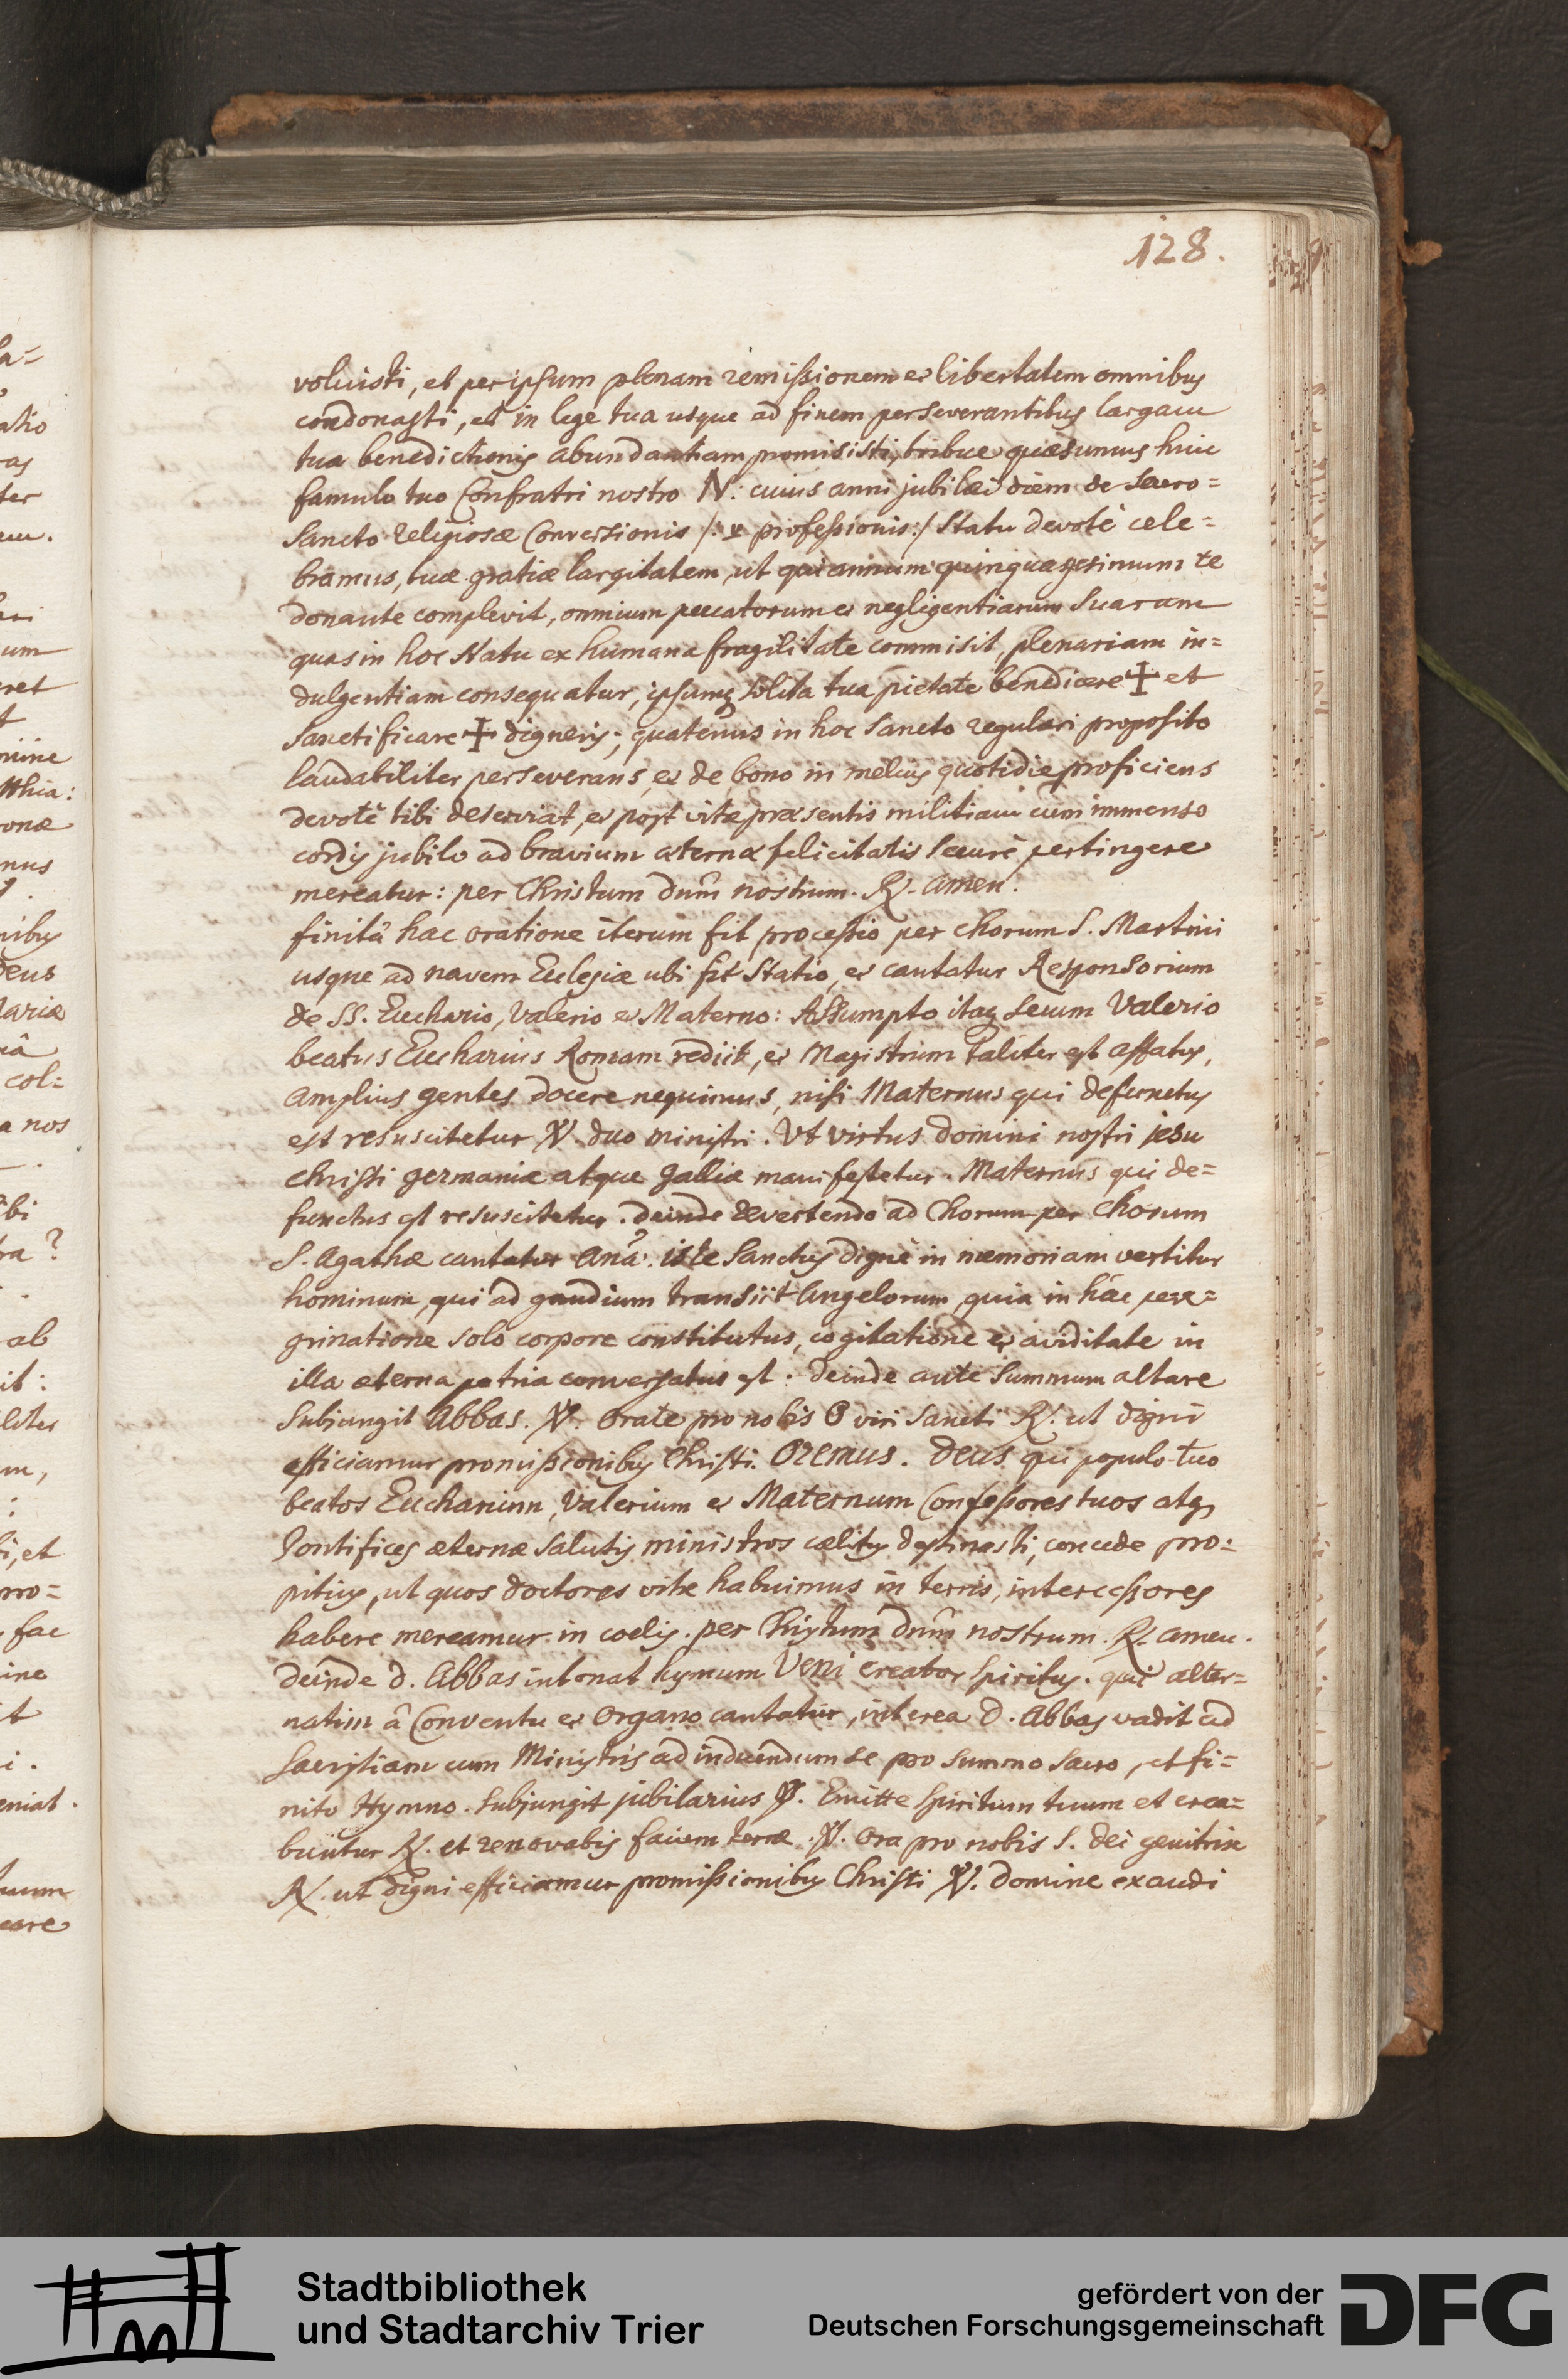 128.
voluisti, et per ipsum plenam remissionem et libertatem omnibus
condonasti, et in lege tua usque ad finem perseverantibus largam
tua benedictionis abundantiam promisisti, tribue quæsumus huic
famulo tuo Confratri nostro N: cuius anni jubilæi diem de sacro=
sancto religiosæ Conversionis /: vel professionis :/ statu devotè cele=
bramus, tuæ gratiæ largitatem, ut qui annum quinquagesimum te
donante complevit, omnium peccatorum et negligentiarum suarum
quas in hoc statu ex humana fragilitate commisit, plenariam in=
dulgentiam consequatur, ipsumq solita tua pietate benedicere ✠ et
sanctificare ✠ digneris; quatenus in hoc sancto regulari proposito
laudabiliter perseverans, et de bono in melius quotidie proficiens
devotè tibi deserviat, et post vitæ præsentis militiam cum immenso
cordis jubilo ad bravium æternæ felicitatis securè pertingere
mereatur: per Christum dnm nostrum. ℟. amen.
finitâ hac oratione iterum fit processio per chorum S. Martini
usque ad navem Ecclesiæ ubi fit statio, et cantatur Responsorium
de SS. Euchario, Valerio et Materno: Assumpto itaq secum Valerio
beatus Eucharius Romam rediit, et Magistrum taliter est affatus,
amplius gentes docere nequimus, nisi Maternus qui defunctus
est resuscitetur ℣. duo ministri. Ut virtus domini nostri jesu
christi germaniæ atque galliæ manifestetur. Maternus qui de=
functus est resuscitetur. deinde devertendo ad Chorum per Chorum
S. Agathæ cantatur anã. iste Sanctus dignè in memoriam vertitur
hominum, qui ad gaudium transiit Angelorum, quia in hâc pere=
grinatione solo corpore constitutus, cogitatione et aviditate in
illa æterna patria conversatus est. deinde ante summum altare
subjungit Abbas. ℣. Orate pro nobis O viri sancti ℟. ut digni
efficiamur promissionibus Christi. Oremus. Deus qui populo tuo
beatos Eucharium, Valerium et Maternum Confessores tuos atq
Pontifices æternæ salutis ministros cælitus destinasti, concede pro=
pitius, ut quos doctores vitæ habuimus in terris, intercessores
habere mereamur in coelis. per Christum dnm nostrum. ℟. amen.
deinde d. Abbas intonat hymnum Veni creator Spiritus. qui alter=
natim â Conventu et Organo cantatur, interea d. Abbas vadit ad
sacristiam cum Ministris ad induendum se pro summo sacro, et fi=
nito Hymno. subjungit jubilarius ℣. Emitte Spiritum tuum et crea=
buntur ℟. et renovabis faciem terræ. ℣. Ora pro nobis S. dei genitrix
℟. ut digni efficiamur promissionibus Christi ℣. Domine exaudi
Stadtbibliothek
und Stadtarchiv Trier
gefördert von der
Deutschen Forschungsgemeinschaft
DFG